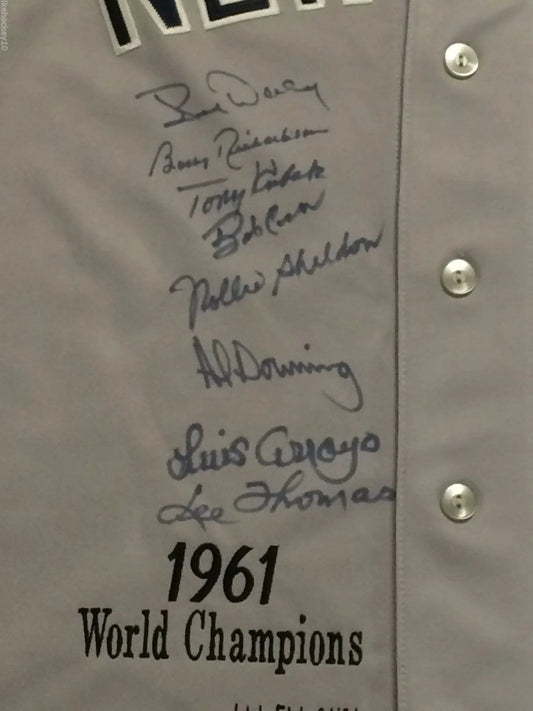 NEW
Bud Daley
Bobby Richardson
Tony Kubek
Bob Cerv
Rollie Sheldon
Al Downing
Luis Arroyo
Lee Thomas
1961
World Champions